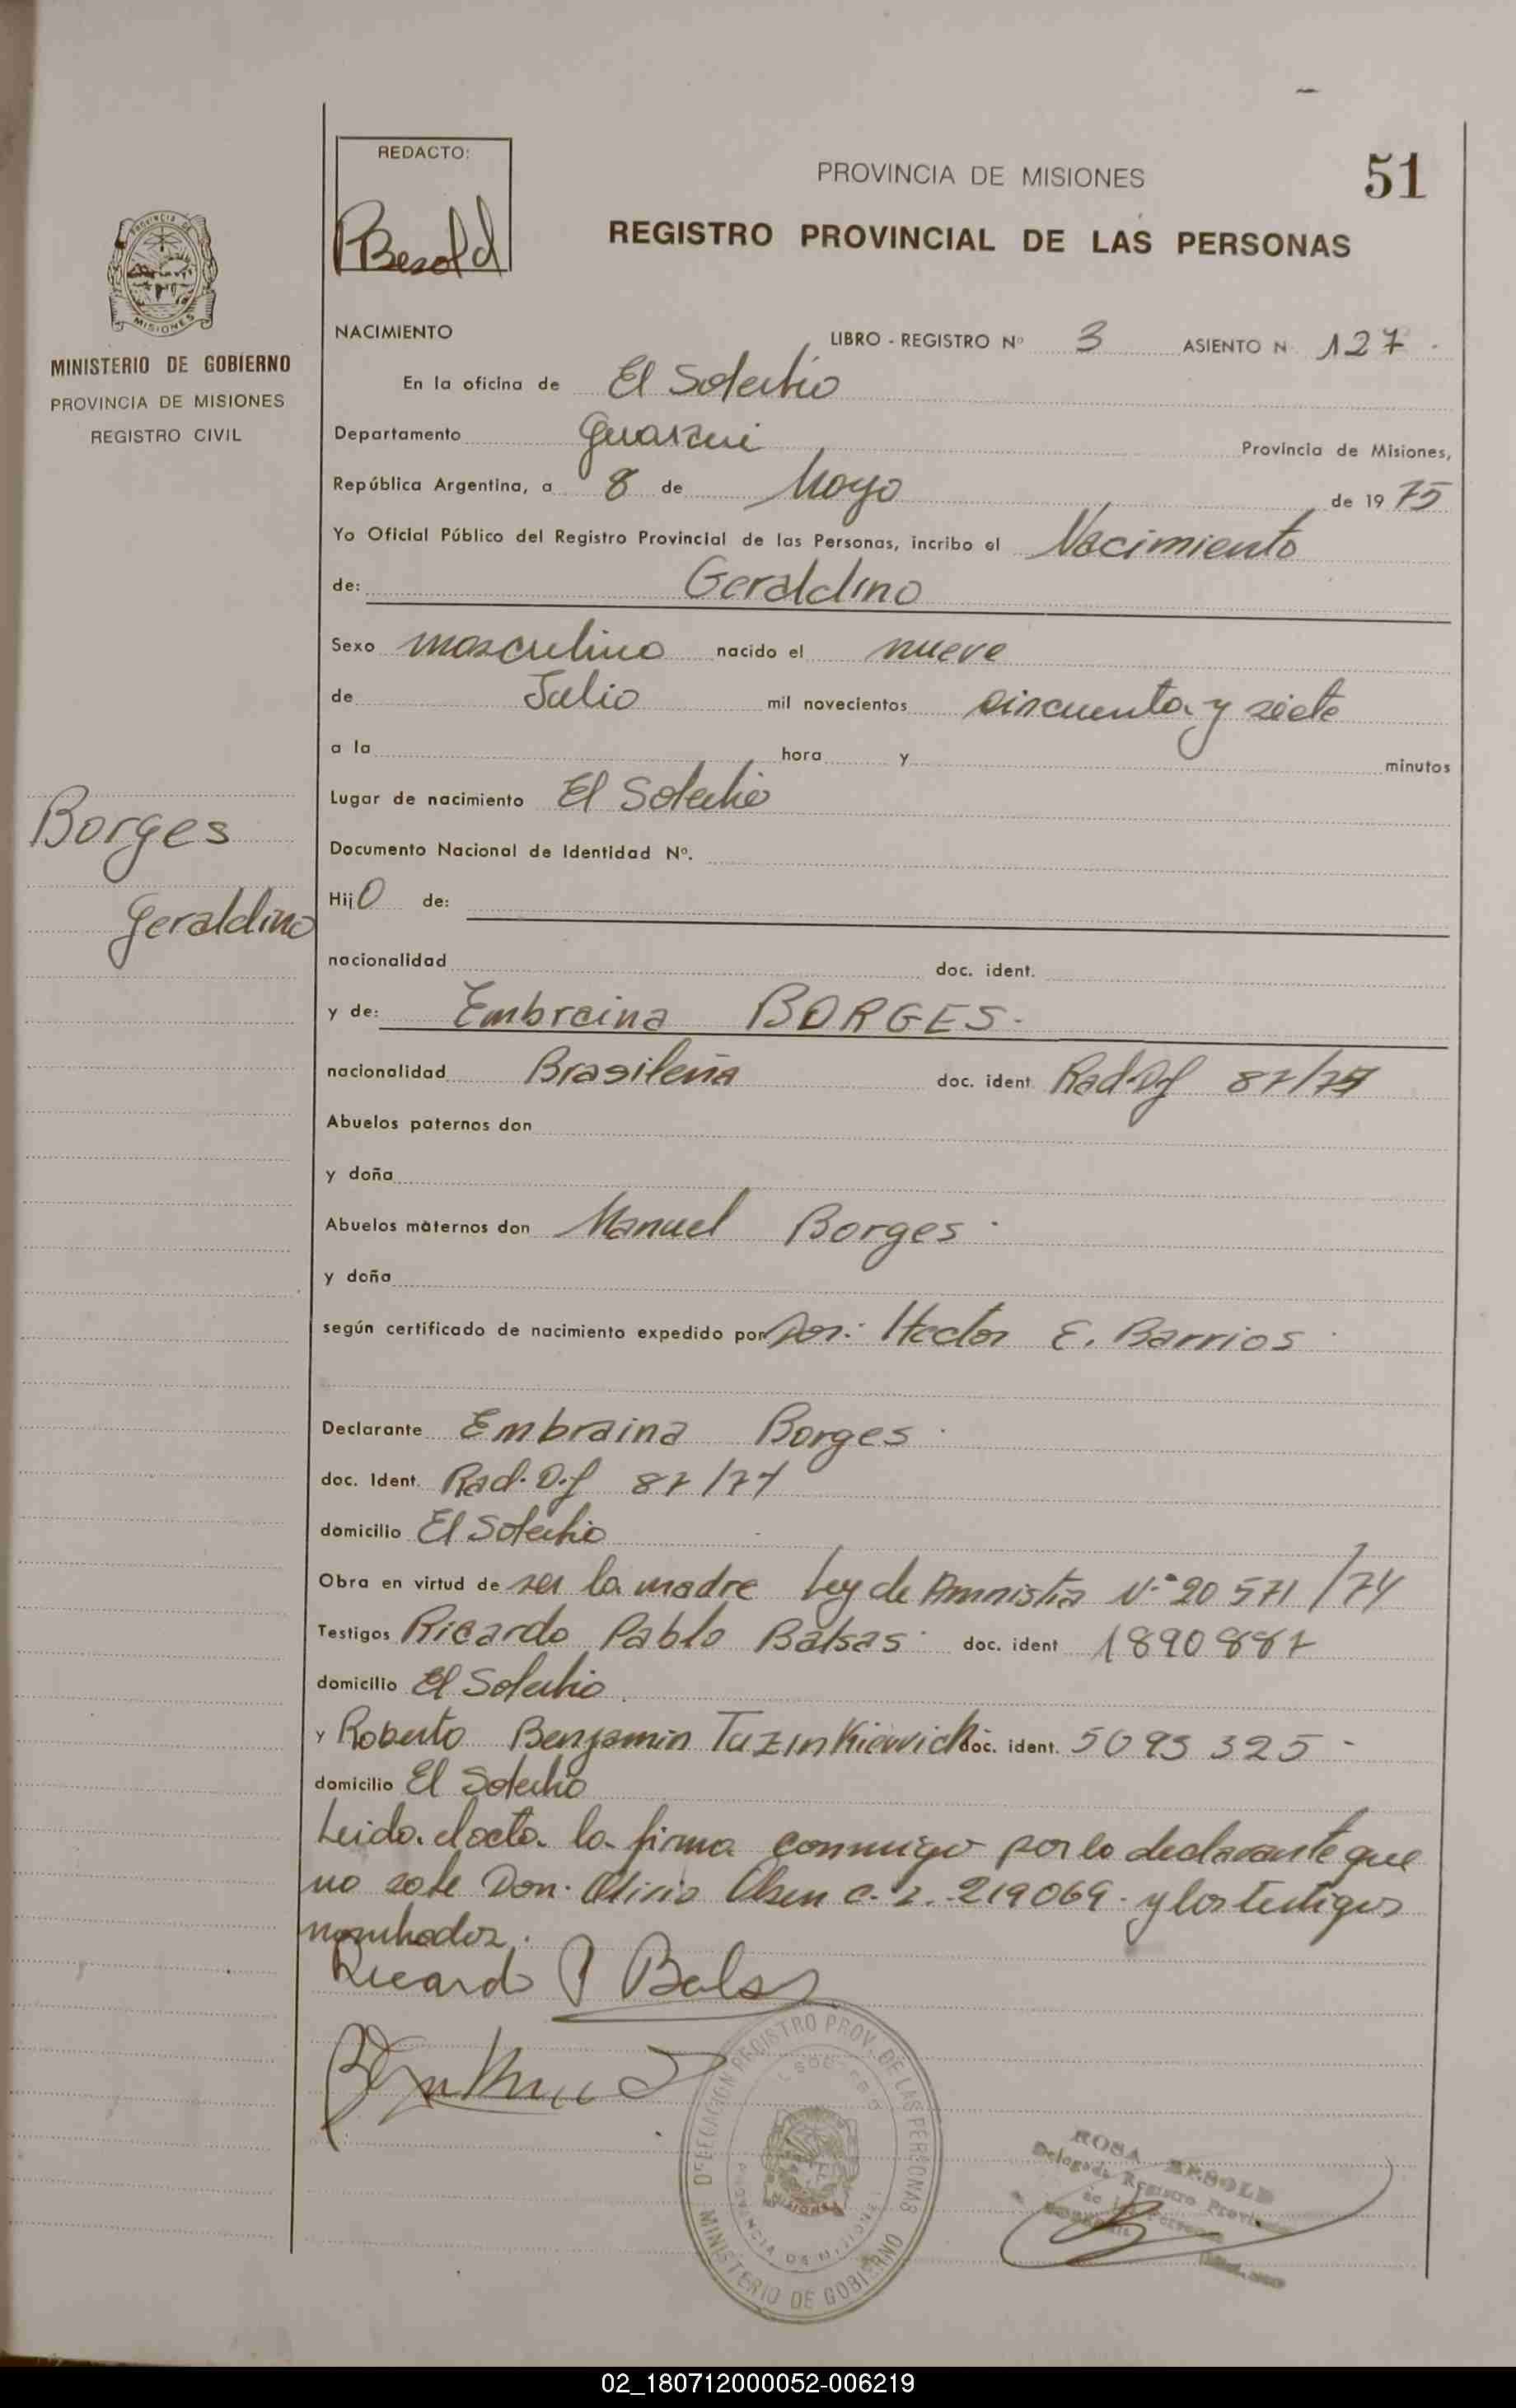 REDACTO:
Besold
PROVINCIA DE MISIONES
51
REGISTRO PROVINCIAL DE LAS PERSONAS
PROVINCIA DE
MISIONES
MINISTERIO DE GOBIERNO
PROVINCIA DE MISIONES
REGISTRO CIVIL
NACIMIENTO LIBRO - REGISTRO Nº 3 ASIENTO N 127 -
En la oficina de El Soberbio
Departamento Guarani Provincia de Misiones,
República Argentina, a 8 de Mayo de 1975
Yo Oficial Público del Registro Provincial de las Personas, incribo el Nacimiento
de: Geraldino
Sexo masculino nacido el nueve
de Julio mil novecientos cincuenta y siete
a la hora y minutos
Lugar de nacimiento El Soberbio
Borges
Geraldino
Documento Nacional de Identidad Nº.
Hijo de:
nacionalidad doc. ident.
y de: Embraina BORGES -
nacionalidad Brasileña doc. ident. Rad. Df 87/74
Abuelos paternos don
y doña
Abuelos maternos don Manuel Borges -
y doña
según certificado de nacimiento expedido por Dor: Hector E. Barrios -
Declarante Embraina Borges -
doc. Ident. Rad. D.f 87/74
domicilio El Soberbio
Obra en virtud de ser la madre Ley de Amnistia Nº 20571/74
Testigos Ricardo Pablo Balsas - doc. ident 1890887
domicilio El Soberbio
y Roberto Benjamin Tuzinkievich doc. ident. 5095325 -
domicilio El Soberbio
Leida el acta la firma conmigo por la declarante que
no sabe Don Olsen C. I. 219069 - y los testigos
nombrados.
Ricardo P Balsas
DELEGACION REGISTRO PROV. DE LAS PERSONAS
MINISTERIO DE GOBIERNO
PROVINCIA DE MISIONES
ROSA BESOLD
Delegada Registro Provincial
de las Personas
02_180712000052-006219